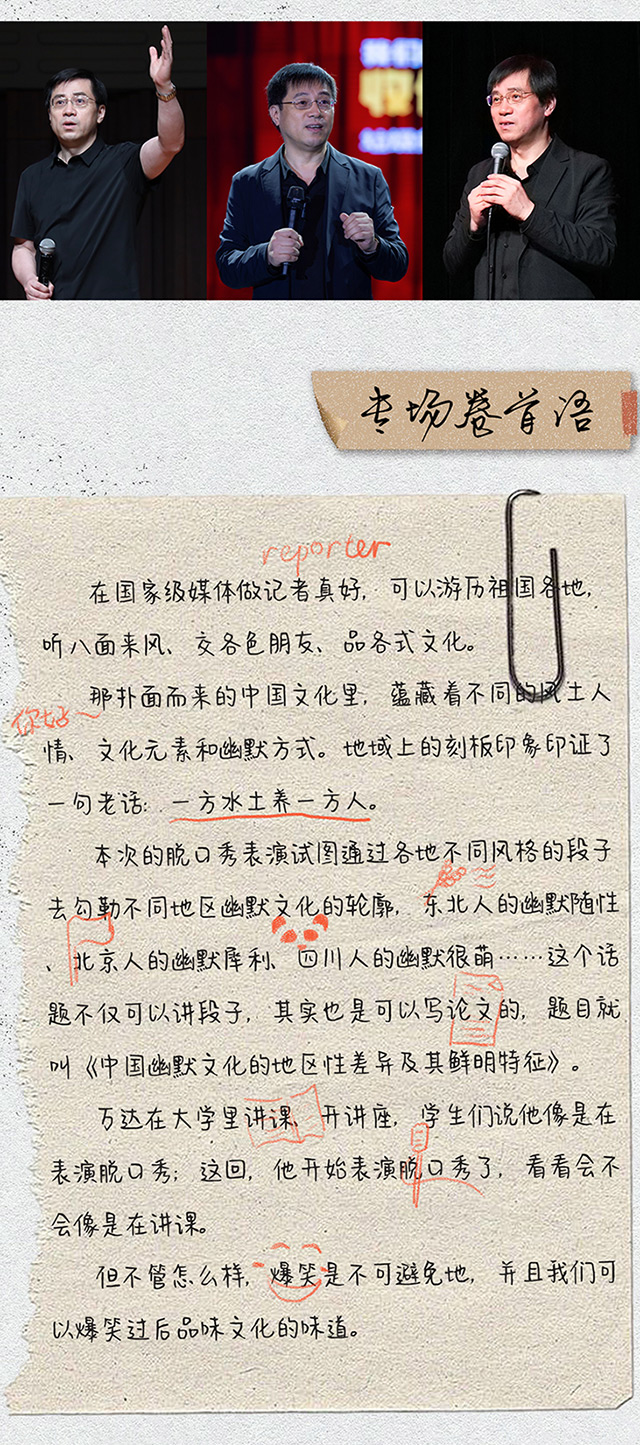 专场卷首语
reporter
在国家级媒体做记者真好，可以游历祖国各地，
听八面来风、交各色朋友、品各式文化。
那扑面而来的中国文化里，蕴藏着不同的风土人
你好~
情、文化元素和幽默方式。地域上的刻板印象印证了
一句老话：一方水土养一方人。
本次的脱口秀表演试图通过各地不同风格的段子
去勾勒不同地区幽默文化的轮廓，东北人的幽默随性
、北京人的幽默犀利、四川人的幽默很萌……这个话
题不仅可以讲段子，其实也是可以写论文的，题目就
叫《中国幽默文化的地区性差异及其鲜明特征》。
万达在大学里讲课、开讲座，学生们说他像是在
表演脱口秀；这回，他开始表演脱口秀了，看看会不
会像是在讲课。
但不管怎么样，爆笑是不可避免地，并且我们可
以爆笑过后品味文化的味道。